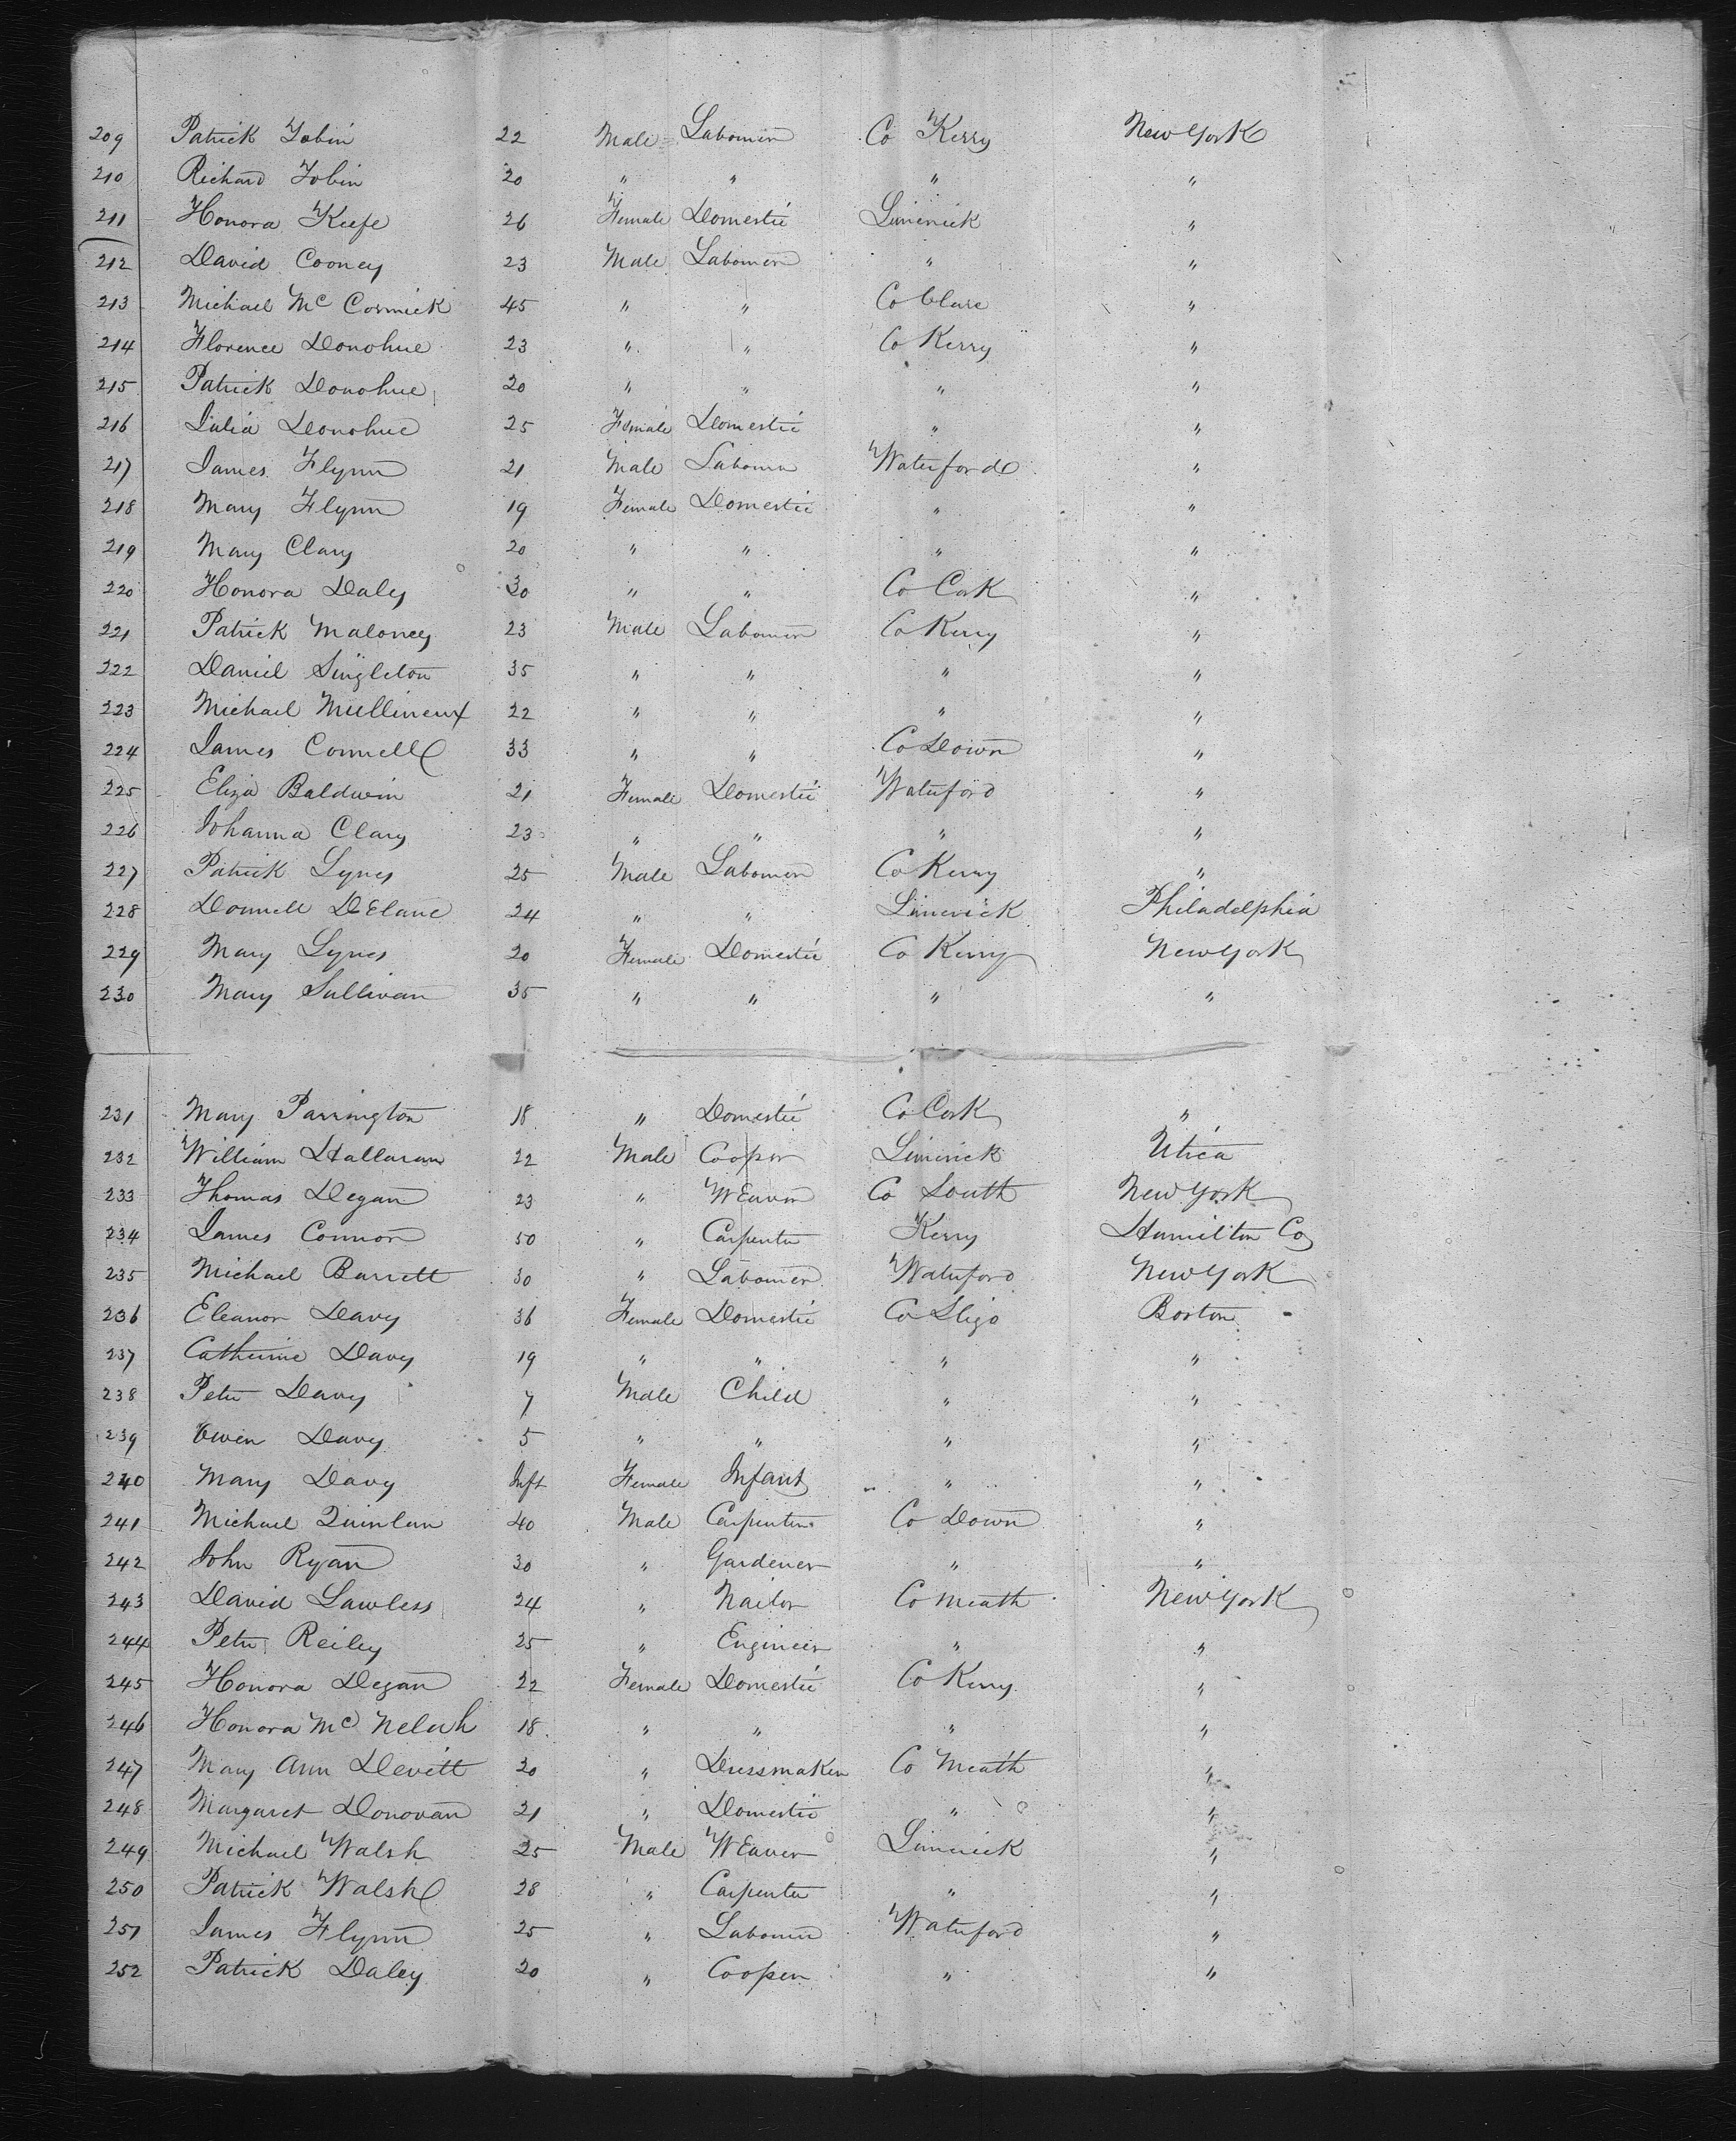 209 Patrick Tobin 22 Male Labourer Co Kerry New York
210 Richard Tobin 20 " " " "
211 Honora Keefe 26 Female Domestic Limerick "
212 David Cooney 23 Male Labourer " "
213 Michael Mc Cormick 45 " " Co Clare "
214 Florence Donohue 23 " " Co Kerry "
215 Patrick Donohue 20 " " " "
216 Julia Donohue 25 Female Domestic " "
217 James Flynn 21 Male Labourer Waterford "
218 Mary Flynn 19 Female Domestic " "
219 Mary Clary 20 " " " "
220 Honora Daley 30 " " Co Cork "
221 Patrick Maloney 23 Male Labourer Co Kerry "
222 Daniel Singleton 35 " " " "
223 Michael Mullineux 22 " " " "
224 James Connell 33 " " Co Down "
225 Eliza Baldwin 21 Female Domestic Waterford "
226 Johanna Clary 23 " " " "
227 Patrick Lynes 25 Male Labourer Co Kerry "
228 Donnell DeLane 24 " " Limerick Philadelphia
229 Mary Lynes 20 Female Domestic Co Kerry New York
230 Mary Sullivan 35 " " " "
231 Mary Parrington 18 " Domestic Co Cork "
232 William Hallaran 22 Male Cooper Limerick Utica
233 Thomas Degan 23 " Weaver Co Louth New York
234 James Connor 50 " Carpenter Kerry Hamilton Co
235 Michael Barrett 30 " Labourer Waterford New York
236 Eleanor Davy 36 Female Domestic Co Sligo Boston
237 Catherine Davy 19 " " " "
238 Peter Davy 7 Male Child " "
239 Owen Davy 5 " " " "
240 Mary Davy Inft Female Infant " "
241 Michael Quinlan 40 Male Carpenter Co Down "
242 John Ryan 30 " Gardener " "
243 David Lawless 24 " Nailor Co Meath New York
244 Peter Reiley 25 " Engineer " "
245 Honora Degan 22 Female Domestic Co Kerry "
246 Honora Mc 18 " " " "
247 Mary Ann Devitt 20 " Dressmaker Co Meath "
248 Margaret Donovan 21 " Domestic " "
249 Michael Walsh 25 Male Weaver Limerick "
250 Patrick Walsh 28 " Carpenter " "
251 James Flynn 25 " Labourer Waterford "
252 Patrick Daley 20 " Cooper " "